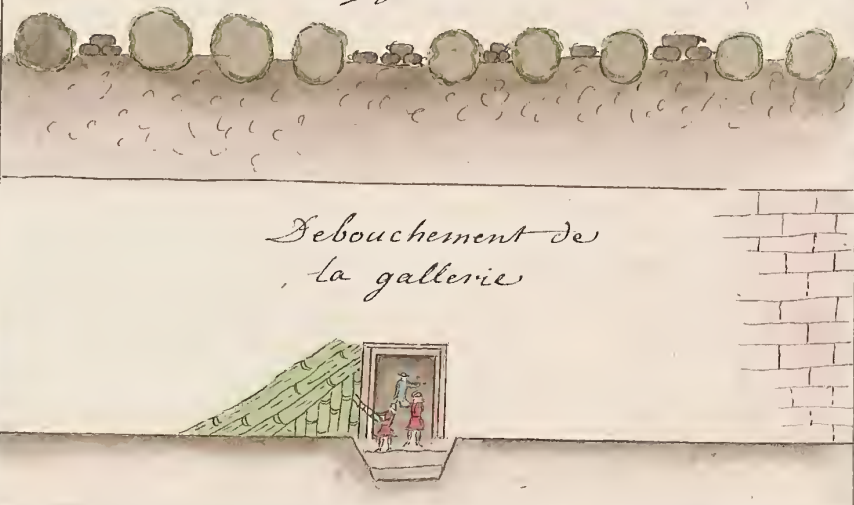 Debouchement de
la gallerie